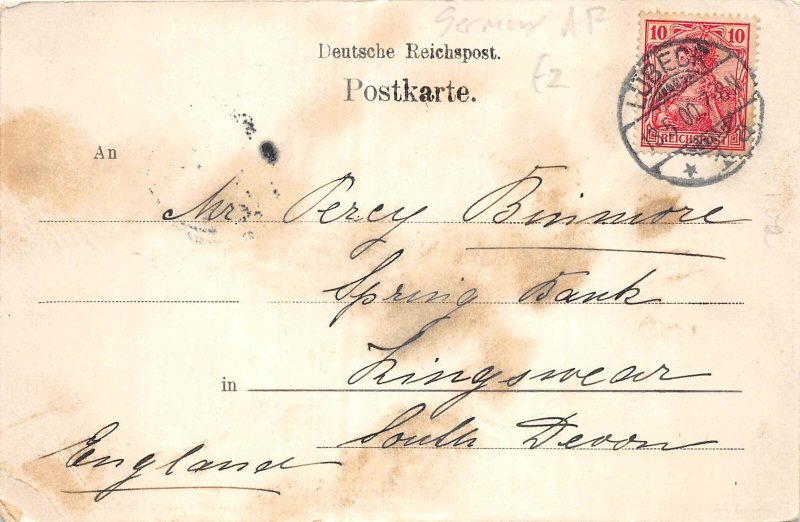 Germany
£2
Deutsche Reichspost.
Postkarte.
10 10
REICHSPOST
LÜBECK
An
Mr. Percy Binmore
Spring Bank
in Kingswear
South Devon
England